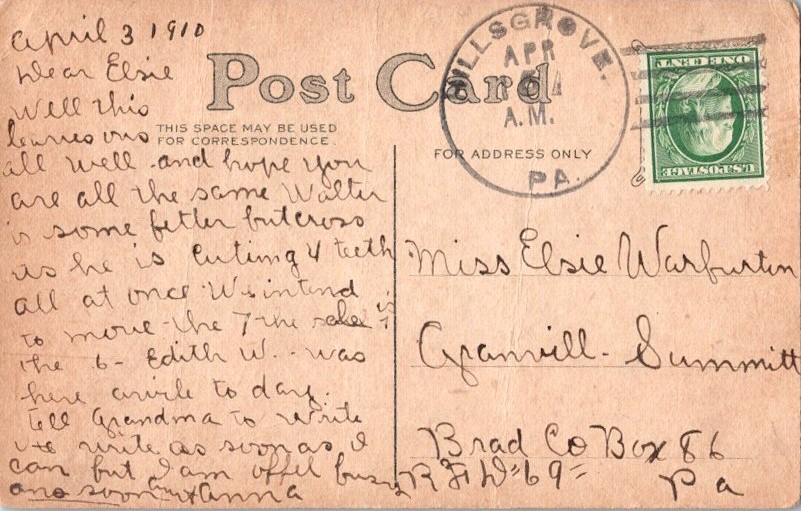 April 3 1910
Dear Elsie
Well this
leaves ous
all well and hope you
are all the same Walter
is some fetter but cross
as he is cuting 4 teeth
all at once We intend
to move the 7 the sale is
the 6 - Edith W. was
here awile to day.
tell Grandma to write
write as soon as I
can but I am offel busy
ans soon aunt Anna
Post Card
THIS SPACE MAY BE USED
FOR CORRESPONDENCE
FOR ADDRESS ONLY
HILLSGROVE.
APR
A.M.
PA.
U.S. POSTAGE
ONE CENT
Miss Elsie Warburton
Granvill - Summitt
Brad Co Box 86
R F D 69
Pa